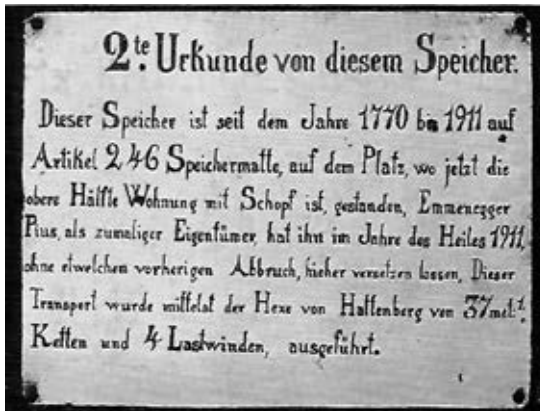 2te. Urkunde von diesem Speicher.
Dieser Speicher ist seit dem Jahre 1770 bis 1911 auf
Artikel 246 Speichermatte, auf dem Platz, wo jetzt die
obere Hälfte Wohnung mit Schopf ist, gestanden, Emmenegger
Pius, als zumaliger Eigentümer, hat ihn im Jahre des Heiles 1911,
ohne etwelchen vorherigen Abbruch, hieher versetzen lassen, Dieser
Transport wurde mittelst der Hexe von Hattenberg von 37 met.
Ketten und 4 Lastwinden, ausgeführt.